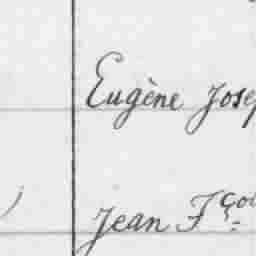 Eugène Jose
Jean Fço